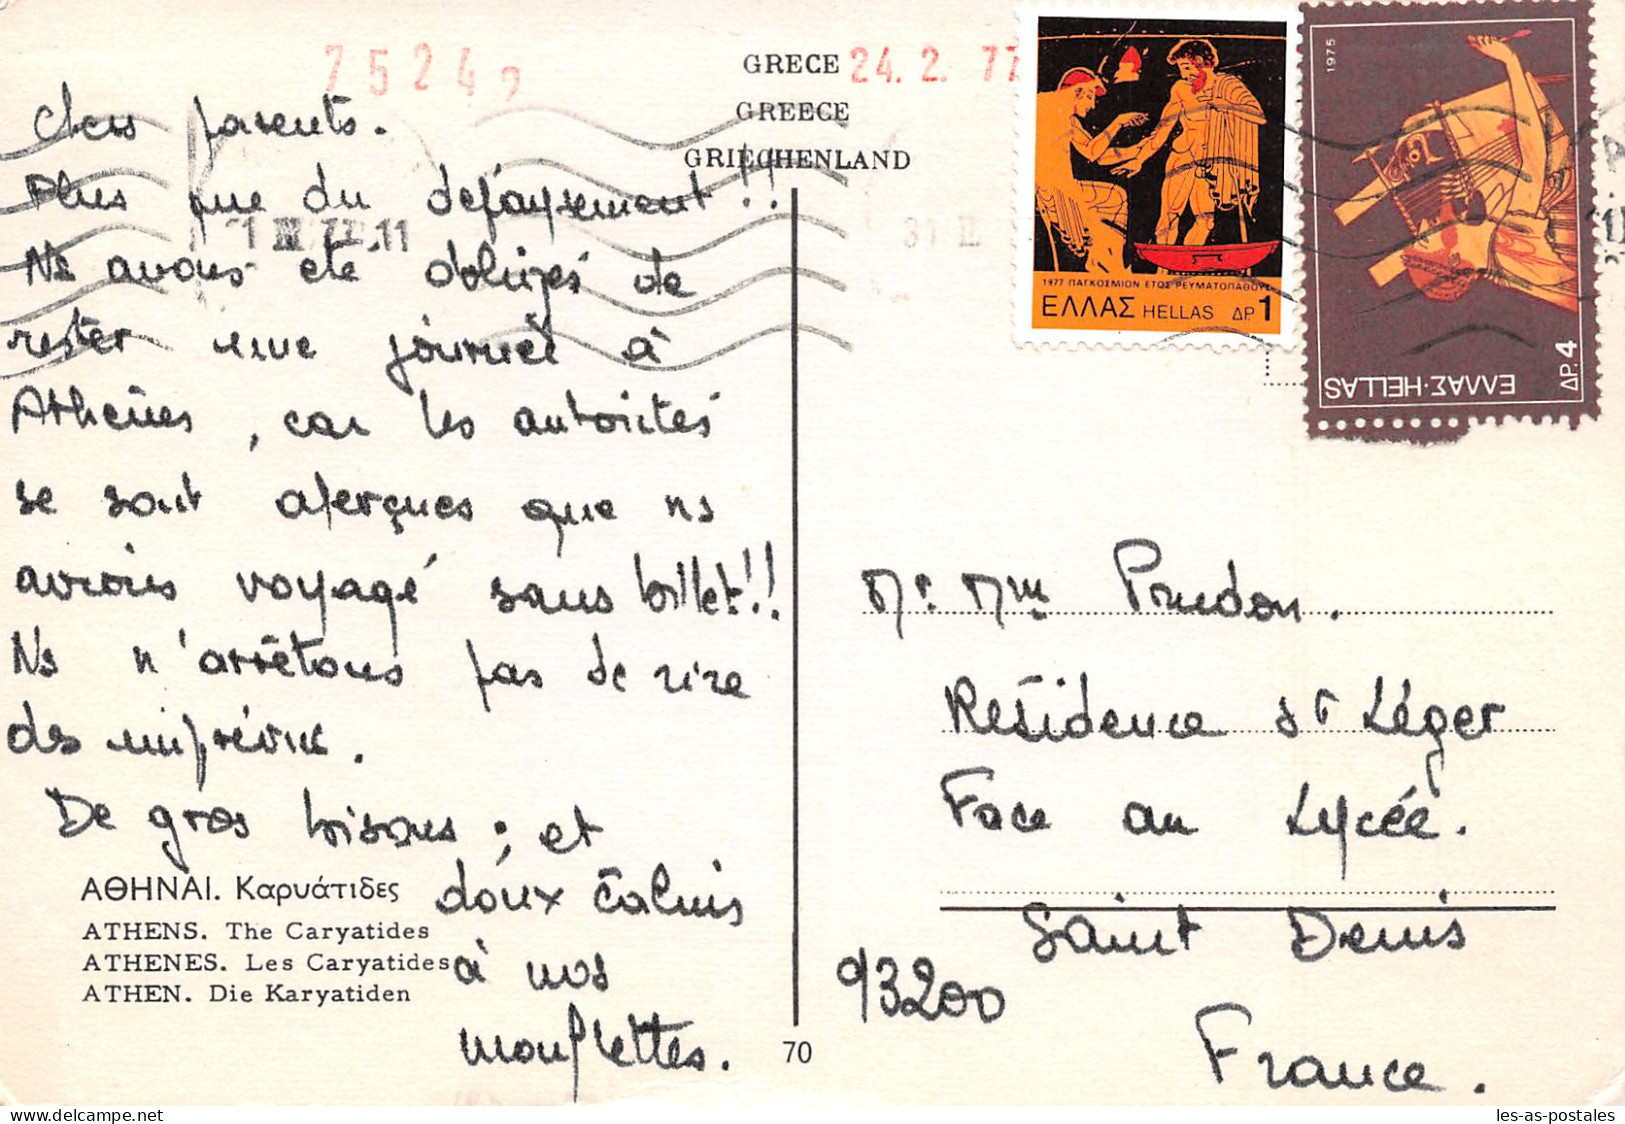 75242
GRECE
GREECE
GRIECHENLAND
24. 2. 77
1 III 77.11
1977 ΠΑΓΚΟΣΜΙΟΝ ΕΤΟΣ ΡΕΥΜΑΤΟΠΑΘΟΥΣ
ΕΛΛΑΣ HELLAS ΔΡ. 1
1975
ΕΛΛΑΣ·HELLAS ΔΡ. 4
Chers parents.
Plus que du dépaysement!!
Ns avons été obligés de
rester une journée à
Athènes, car les autorités
se sont aperçues que ns
avions voyagé sans billet!!
Ns n'arrêtons pas de rire
des imprévus.
De gros bisous; et
doux calins
à nos
mouflettes.
ΑΘΗΝΑΙ. Καρυάτιδες
ATHENS. The Caryatides
ATHENES. Les Caryatides
ATHEN. Die Karyatiden
70
Mr. Mme Prudon.
Résidence St Léger
Face au Lycée.
Saint Denis
93200
France.
les-as-postales
www.delcampe.net